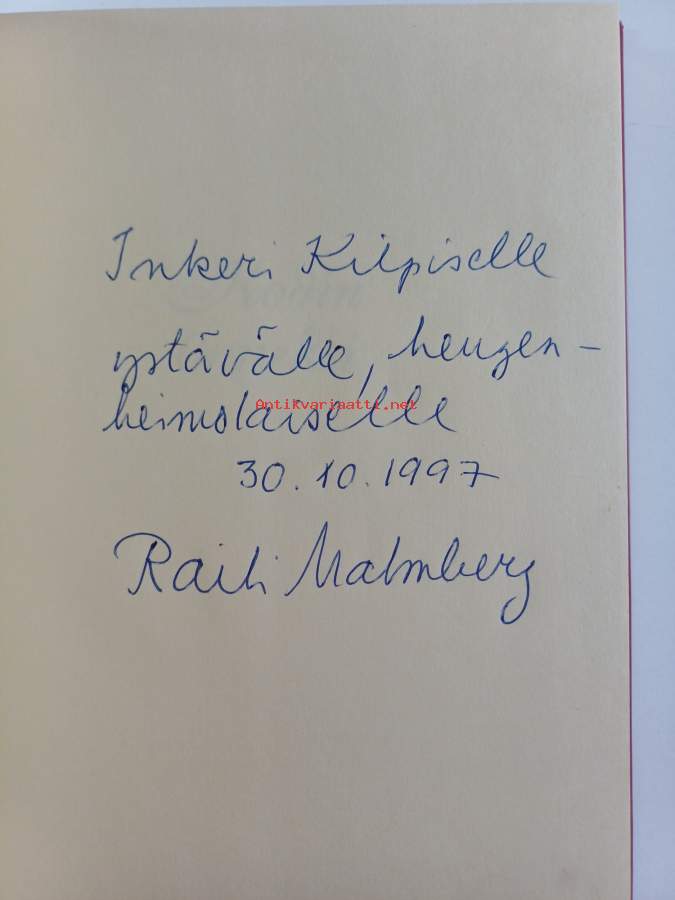 Inkeri Kilpiselle
ystävälle, hengen-
heimolaiselle
Antikvariaatti.net
30.10.1997
Raili Malmberg